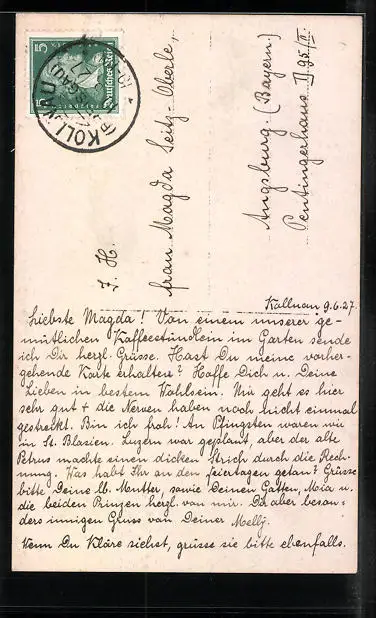 5 Deutsches Reich 5
KOLLNAU
I. H.
Frau Magda Seitz-Oberle,
Augsburg. (Bayern)
Peutingerhaus II 95/II
Kollnau 9.6.27.
Liebste Magda! Von einem unserer ge-
mütlichen Kaffeestündlein im Garten sende
ich Dir herzl. Grüsse. Hast Du meine vorher-
gehende Karte erhalten? Hoffe Dich u. Deine
Lieben in bestem Wohlsein. Mir geht es hier
sehr gut + die Nerven haben noch nicht einmal
gestreikt. Bin ich froh! An Pfingsten waren wir
in St. Blasien. Luzern war geplant, aber der alte
Petrus machte einen dicken Strich durch die Rech-
nung. Was habt Ihr an den Feiertagen getan? Grüsse
bitte Deine lb. Mutter, sowie Deinen Gatten, Mia u.
die beiden Prinzen herzl. von mir. Dir aber beson-
ders innigen Gruss von Deiner Melly.
Wenn Du Kläre siehst, grüsse sie bitte ebenfalls.